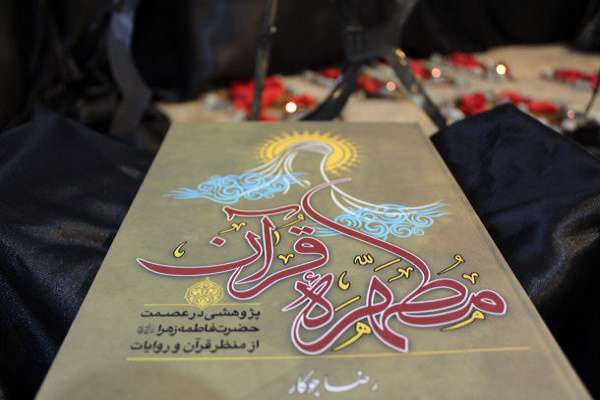 مطهرهٔ قرآن
پژوهشی در عصمت
حضرت فاطمه زهرا
از منظر قرآن و روایات
رضا جوکار